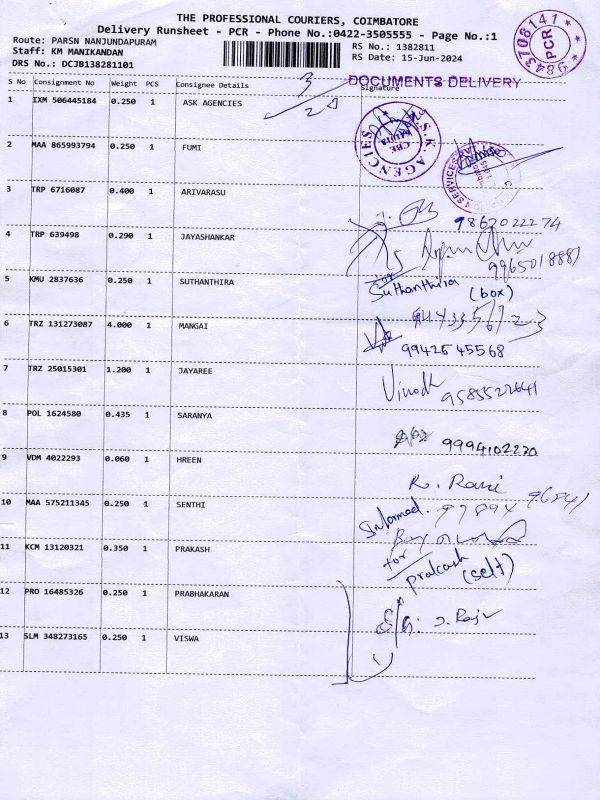 THE PROFESSIONAL COURIERS, COIMBATORE
Delivery Runsheet - PCR - Phone No.:0422-3505555 - Page No.:1
Route: PARSN NANJUNDAPURAM
Staff: KM MANIKANDAN
DRS No.: DCJB138281101
RS No.: 1382811
RS Date: 15-Jun-2024
9843708141 ★ ★ ★
PCR
DOCUMENTS DELIVERY
S No Consignment No Weight PCS Consignee Details Signature
3
2
1 IXM 506445184 0.250 1 ASK AGENCIES
S.K. AGENCIES
CBE
2 MAA 865993794 0.250 1 FUMI
3 TRP 6716087 0.400 1 ARIVARASU
9867022274
4 TRP 639498 0.290 1 JAYASHANKAR
9965018881
5 KMU 2837636 0.250 1 SUTHANTHIRA
Suthanthira (box)
6 TRZ 131273087 4.000 1 MANGAI
9942545568
7 TRZ 25015301 1.200 1 JAYAREE
Vinoth
8 POL 1624580 0.435 1 SARANYA
9994102220
9 VDM 4022293 0.060 1 HREEN
R. Rani
10 MAA 575211345 0.250 1 SENTHI
Informed.
11 KCM 13120321 0.350 1 PRAKASH
for prakash (self)
12 PRO 16485326 0.250 1 PRABHAKARAN
13 SLM 348273165 0.250 1 VISWA